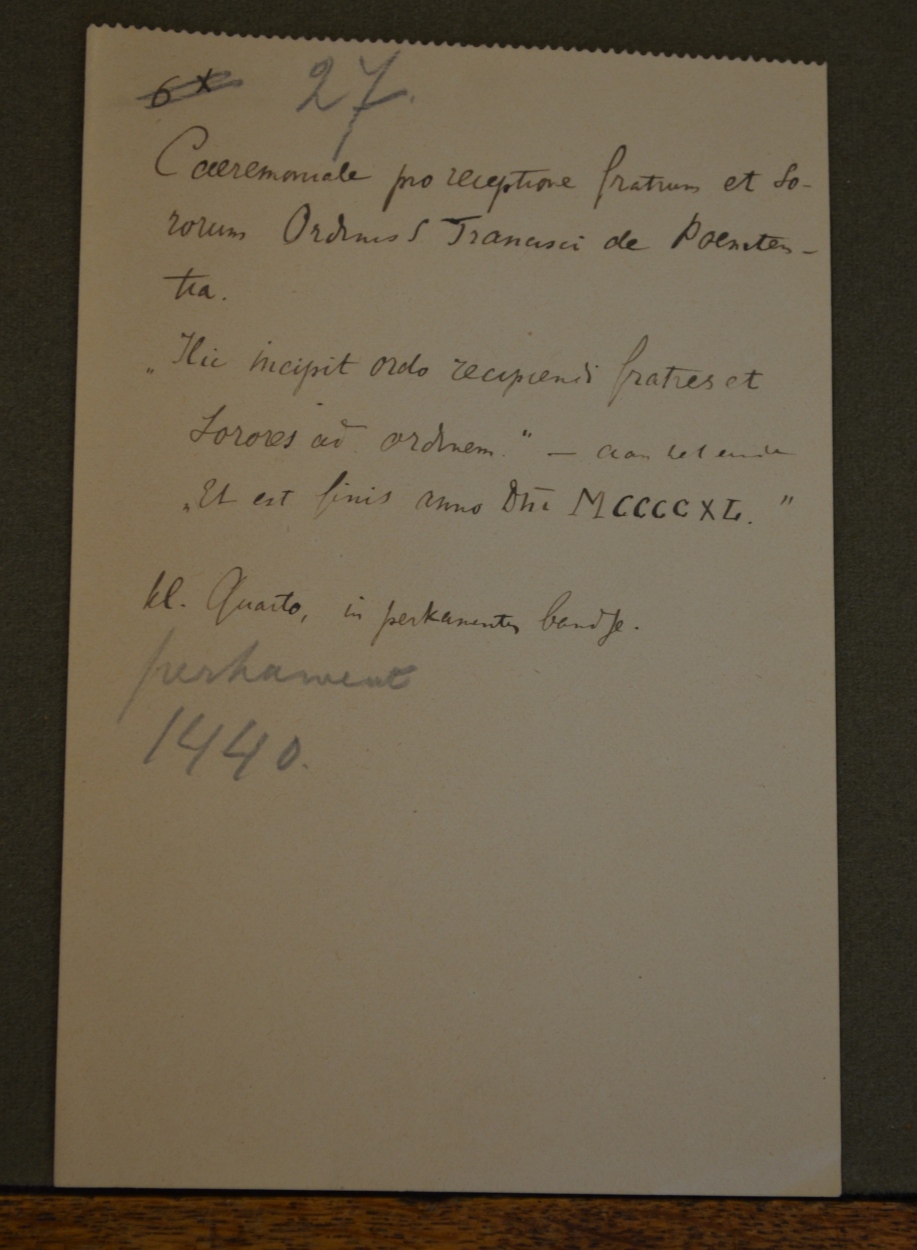 6x 27.
Caeremoniale pro receptione fratrum et So-
rorum Ordinis S Francisci de Poeniten-
tia.
„Hic incipit ordo recipiendi fratres et
Sorores ad ordinem." — aan het einde
„Et est finis anno Dni MCCCCXL."
kl. Quarto, in perkamenten bandje.
perkament
1440.